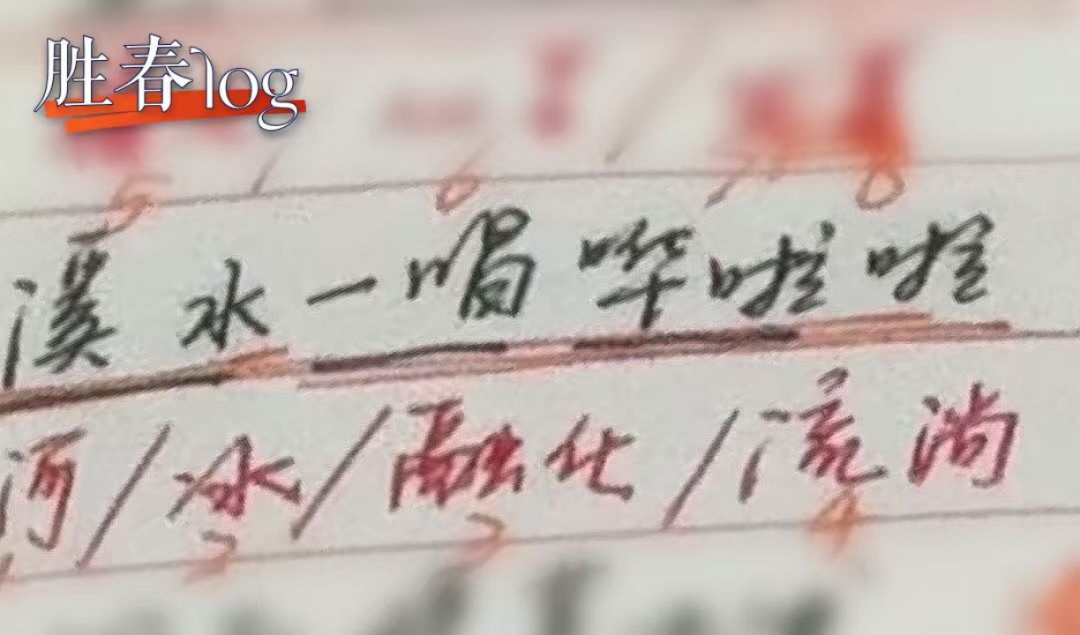 胜春log
5 / 6 / 7 8
溪水一喝哗啦啦
河/冰/融化/流淌
2 3 4